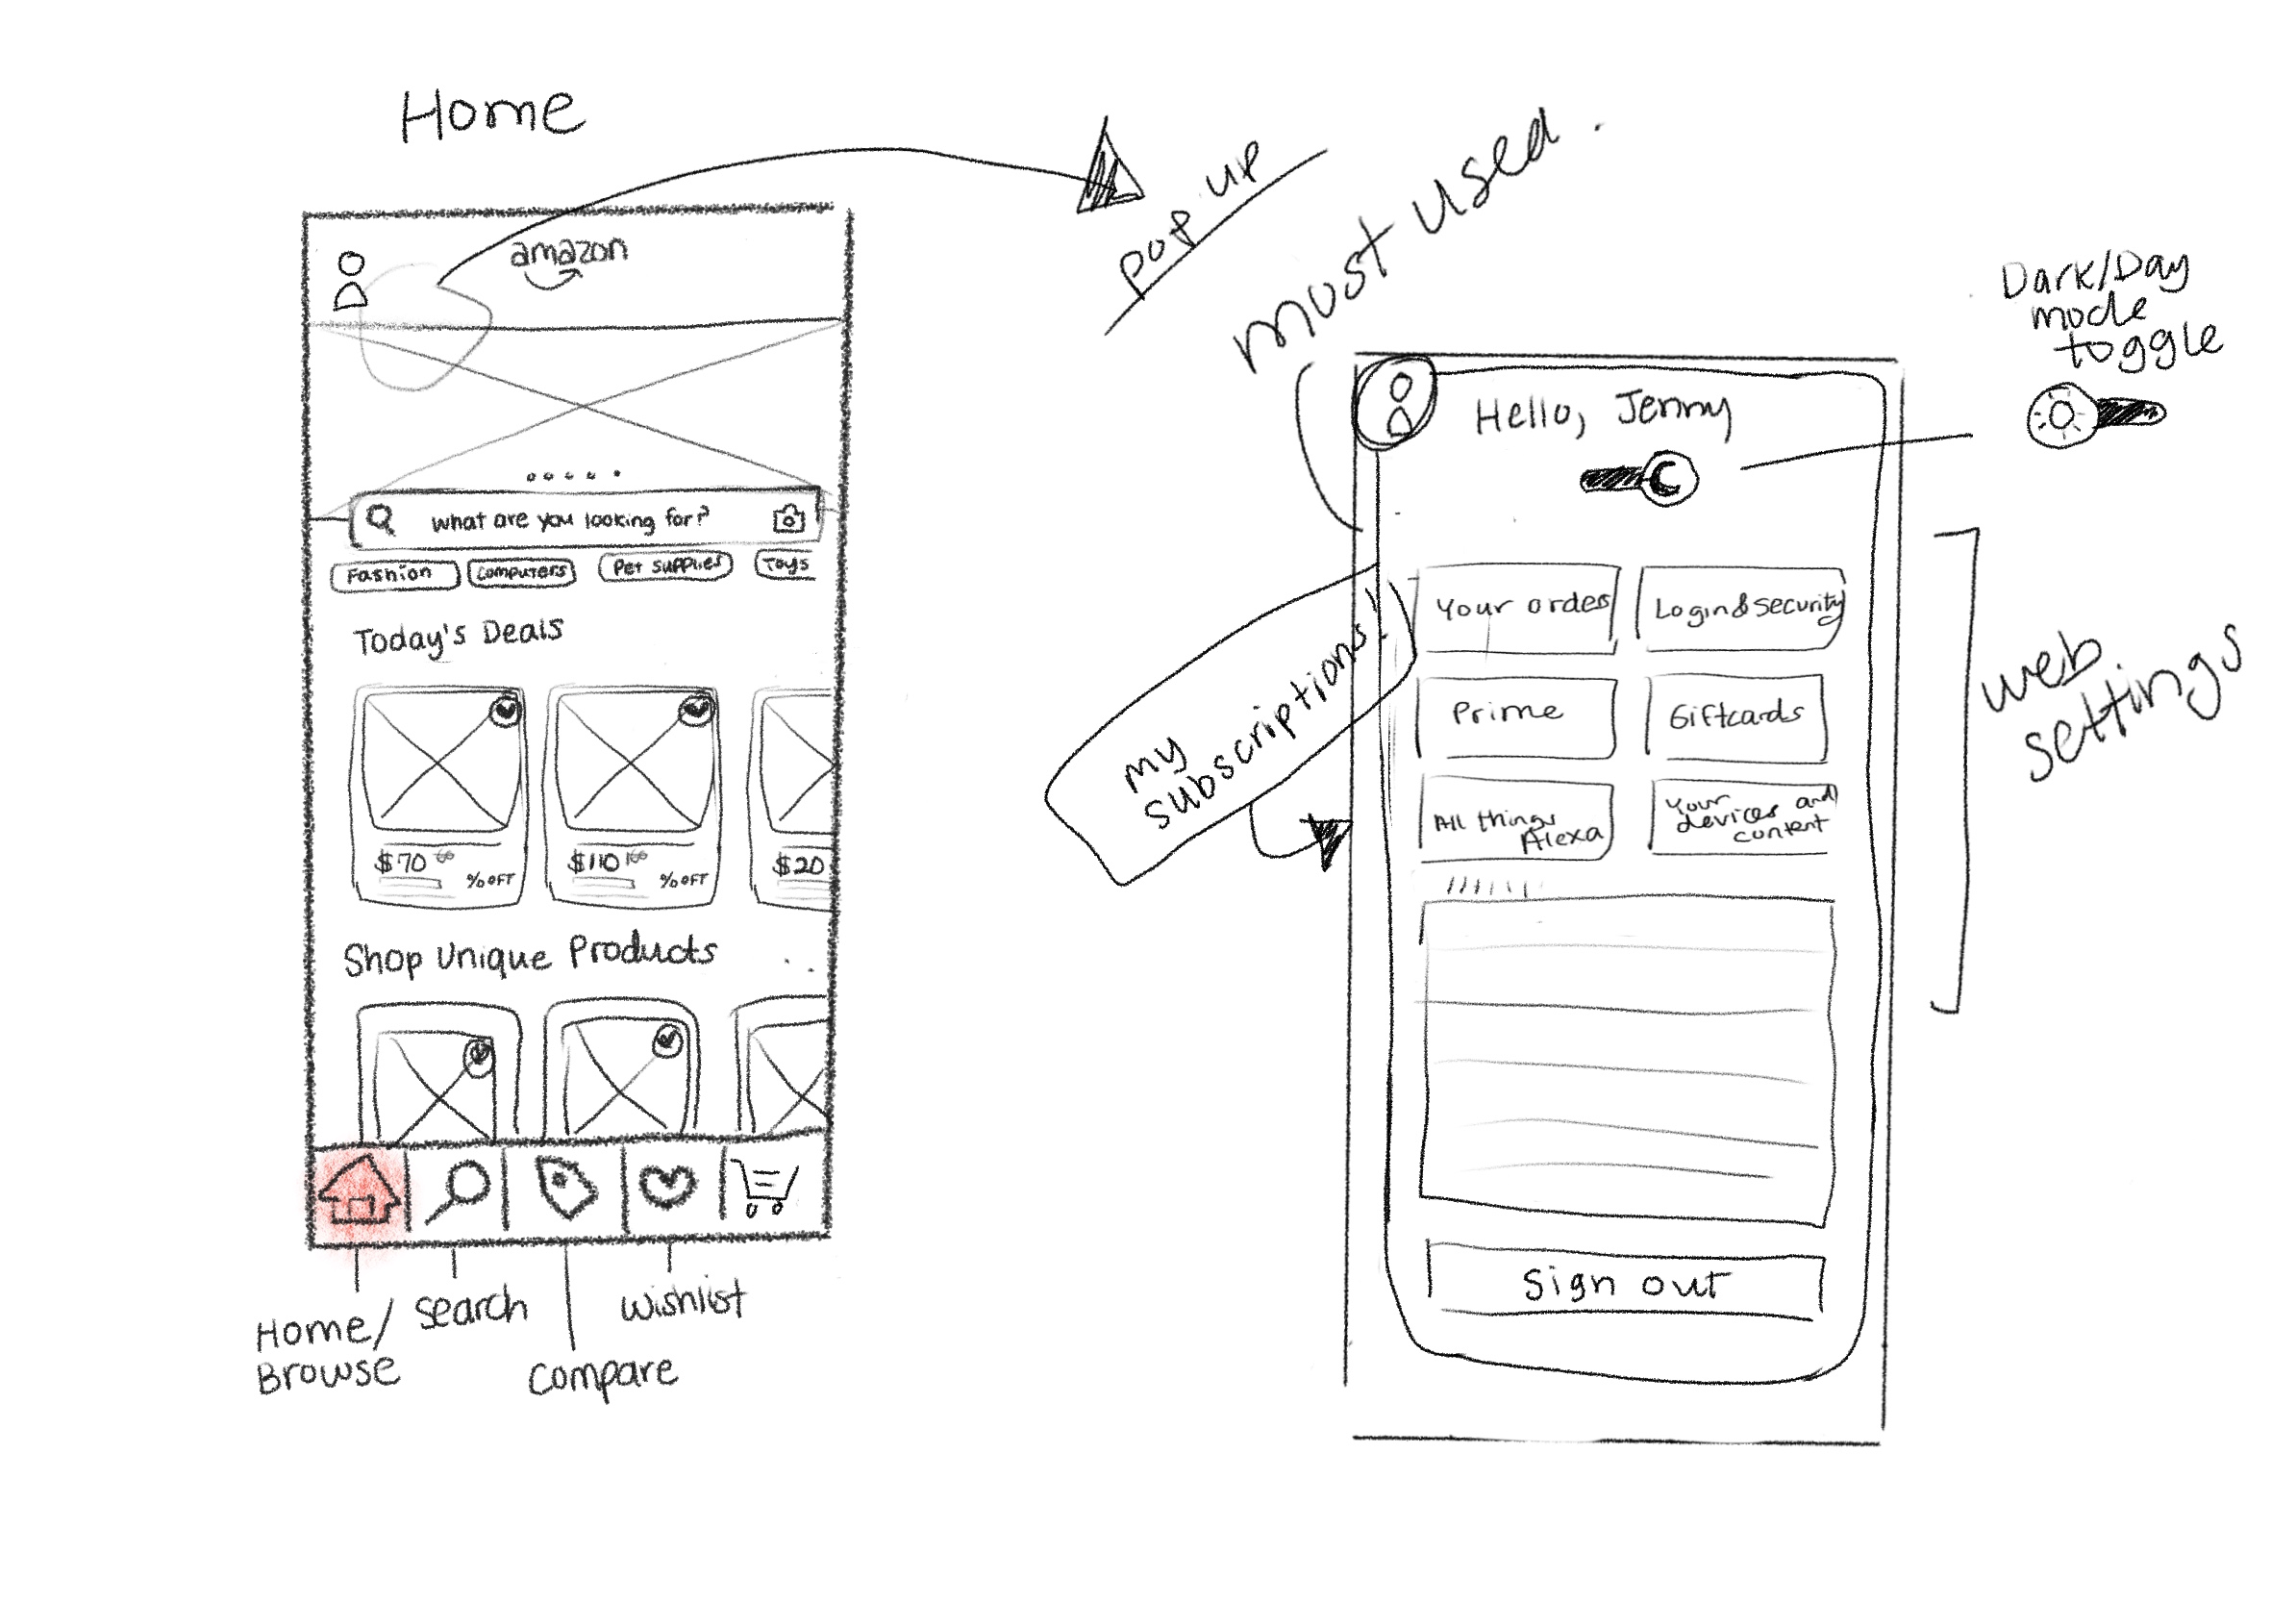 Home
amazon
What are you looking for?
Fashion
Computers
Pet Supplies
Toys
Today's Deals
$70
% OFF
$110
% OFF
$20
Shop Unique Products
Home/
Browse
Search
Compare
Wishlist
pop up
most used.
Dark/Day
mode
toggle
Hello, Jenny
Your orders
Login & Security
Prime
Giftcards
All things
Alexa
Your
devices and
content
my
subscriptions!
web
settings
Sign out